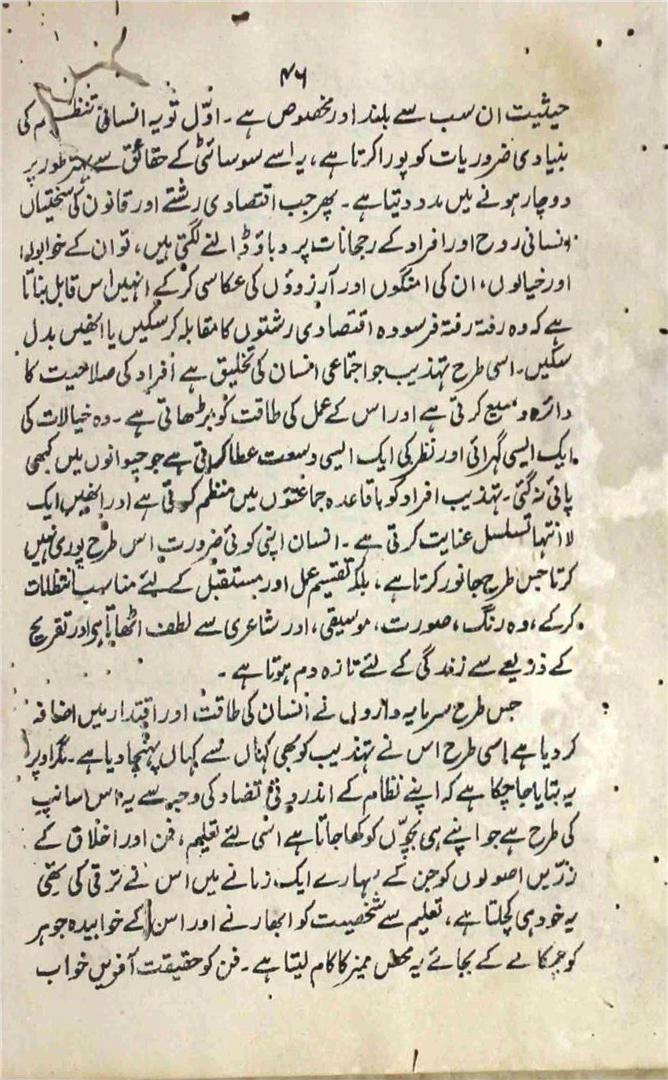 ۴۶
حیثیت ان سب سے بلند اور مخصوص ہے۔ اوّل تو یہ انسانی تنظیم کی
بنیادی ضروریات کو پورا کرتا ہے، یہ اسے سوسائٹی کے حقائق سے بہتر طور پر
دوچار ہونے میں مدد دیتا ہے۔ پھر جب اقتصادی رشتے اور قانون کی سختیاں
انسانی روح اور افراد کے رجحانات پر دباؤ ڈالنے لگتی ہیں، تو ان کے خوابوں
اور خیالوں، ان کی امنگوں اور آرزوؤں کی عکاسی کر کے انہیں اس قابل بناتا
ہے کہ وہ رفتہ رفتہ فرسودہ اقتصادی رشتوں کا مقابلہ کر سکیں یا انھیں بدل
سکیں۔ اسی طرح تہذیب جو اجتماعی انسان کی تخلیق ہے افراد کی صلاحیت کا
دائرہ وسیع کرتی ہے اور اس کے عمل کی طاقت کو بڑھاتی ہے۔ وہ خیالات کی
ایک ایسی گہرائی اور نظر کی ایک ایسی وسعت عطا کرتی ہے جو حیوانوں میں کبھی
پائی نہ گئی۔ تہذیب افراد کو باقاعدہ جماعتوں میں منظم کرتی ہے اور انھیں ایک
لا انتہا تسلسل عنایت کرتی ہے۔ انسان اپنی کوئی ضرورت اس طرح پوری نہیں
کرتا جس طرح جانور کرتا ہے، بلکہ تقسیم عمل اور مستقبل کے لئے مناسب انتظامات
کر کے، وہ رنگ، صورت، موسیقی، اور شاعری سے لطف اٹھاتا ہے اور تفریح
کے ذریعے سے زندگی کے لئے تازہ دم ہوتا ہے۔
جس طرح سرمایہ داروں نے انسان کی طاقت اور اقتدار میں اضافہ
کر دیا ہے اسی طرح اس نے تہذیب کو بھی کہاں سے کہاں پہنچا دیا ہے۔ مگر اوپر
یہ بتایا جا چکا ہے کہ اپنے نظام کے اندرونی تضاد کی وجہ سے یہ اس سانپ
کی طرح ہے جو اپنے ہی بچّوں کو کھا جاتا ہے اسی لئے تعلیم، فن اور اخلاق کے
زرّیں اصولوں کو جن کے سہارے ایک زمانے میں اس نے ترقی کی تھی
یہ خود ہی کچلتا ہے، تعلیم سے شخصیت کو ابھارنے اور اس کے خوابیدہ جوہر
کو چمکانے کے بجائے یہ محض ممیز کا کام لیتا ہے۔ فن کو حقیقت آفریں خواب